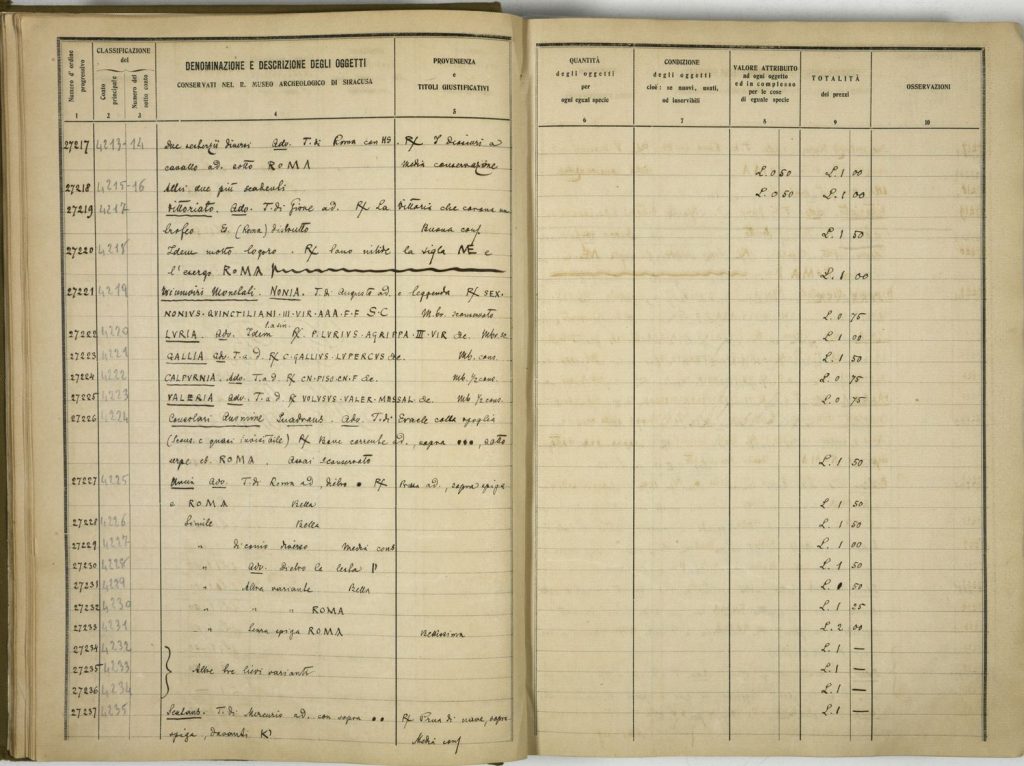 Numero d'ordine progressivo
CLASSIFICAZIONE
del
Conto principale
Numero del sotto conto
DENOMINAZIONE E DESCRIZIONE DEGLI OGGETTI
CONSERVATI NEL R. MUSEO ARCHEOLOGICO DI SIRACUSA
PROVENIENZA
e
TITOLI GIUSTIFICATIVI
QUANTITÀ
degli oggetti
per
ogni egual specie
CONDIZIONE
degli oggetti
cioè: se nuovi, usati,
od inservibili
VALORE ATTRIBUITO
ad ogni oggetto
ed in complesso
per le cose
di eguale specie
TOTALITÀ
dei prezzi
OSSERVAZIONI
1 2 3 4 5 6 7 8 9 10
27217 4213-14 Due diversi Adv. T. di Roma con HS. Rx I Dioscuri a
cavallo ad. sotto ROMA Media conservazione L. 0 50 L. 1 00
27218 4215-16 Altri due più scadenti L. 0 50 L. 1 00
27219 4217 Vittoriato. Adv. T. di Giove ad. Rx La Vittoria che corona un
trofeo. (Roma) distrutto Buona conf L. 1 50
27220 4218 Idem molto logoro. Rx Sono nitide la sigla NE e
l'esergo ROMA L. 1 00
27221 4219 Monetali. NONIA. T. di Augusto ad. e leggenda Rx SEX.
NONIVS. QVINCTILIANI. III. VIR. AAA. F. F S.C M. br. L. 0 75
27222 4220 LVRIA. Adv. Idem Rx. P. LVRIVS. AGRIPPA. III. VIR &c. L. 1 00
27223 4221 GALLIA Adv. T. a d. Rx C. GALLIVS. LVPERCVS &c. Mb. cons. L. 1 50
27224 4222 CALPVRNIA. Adv. T. a d. Rx CN. PISO. CN. F &c. Mb. ½ cons. L. 0 75
27225 4223 VALERIA Adv. T. a d. Rx VOLVSVS. VALER. MESSAL. &c. Mb ½ cons. L. 0 75
27226 4224 Consolari Anonime Quadrans. Adv. T. di Eracle colla spoglia
(Scons. e quasi invisibile) Rx Bove corrente ad., sopra •••, sotto
serpe ed. ROMA. Assai sconservato L. 1 50
27227 4225 Uncia Adv. T. di Roma ad, dietro • Rx Prora ad., sopra spiga
e ROMA Bella L. 1 50
27228 4226 Simile Bella L. 1 50
27229 4227 " di conio diverso Media cons L. 1 00
27230 4228 " Adv. dietro la testa L. 1 50
27231 4229 " Altra variante Bella L. 50
27232 4230 " " " ROMA L. 1 25
27233 4231 " Senza spiga ROMA Bellissima L. 2 00
27234 4232 L. 1 —
27235 4233 Altre tre lievi varianti L. 1 —
27236 4234 L. 1 —
27237 4235 Sextans. T. di Mercurio ad. con sopra •• Rx Prua di nave, sopra L. 1 —
spiga, davanti K Media conf